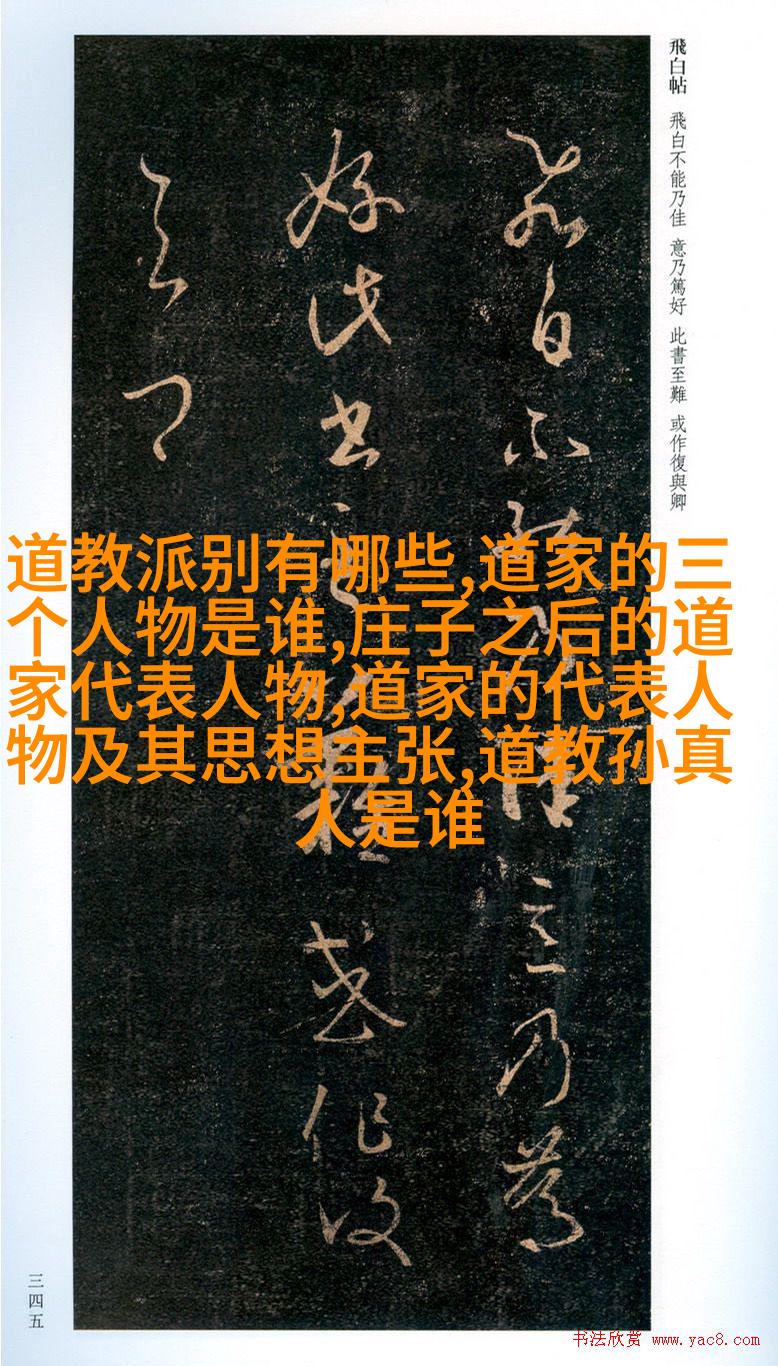 飛白帖 飛白不能乃佳 意乃篤好 此書至難 或作復與卿
飛白不能乃佳意乃篤
好此書至難或作復
與卿
道教派别有哪些,道家的三
个人物是谁,庄子之后的道
家代表人物,道家的代表人
物及其思想主张,道教孙真
人是谁
三四五
书法欣赏 www.yac8.com